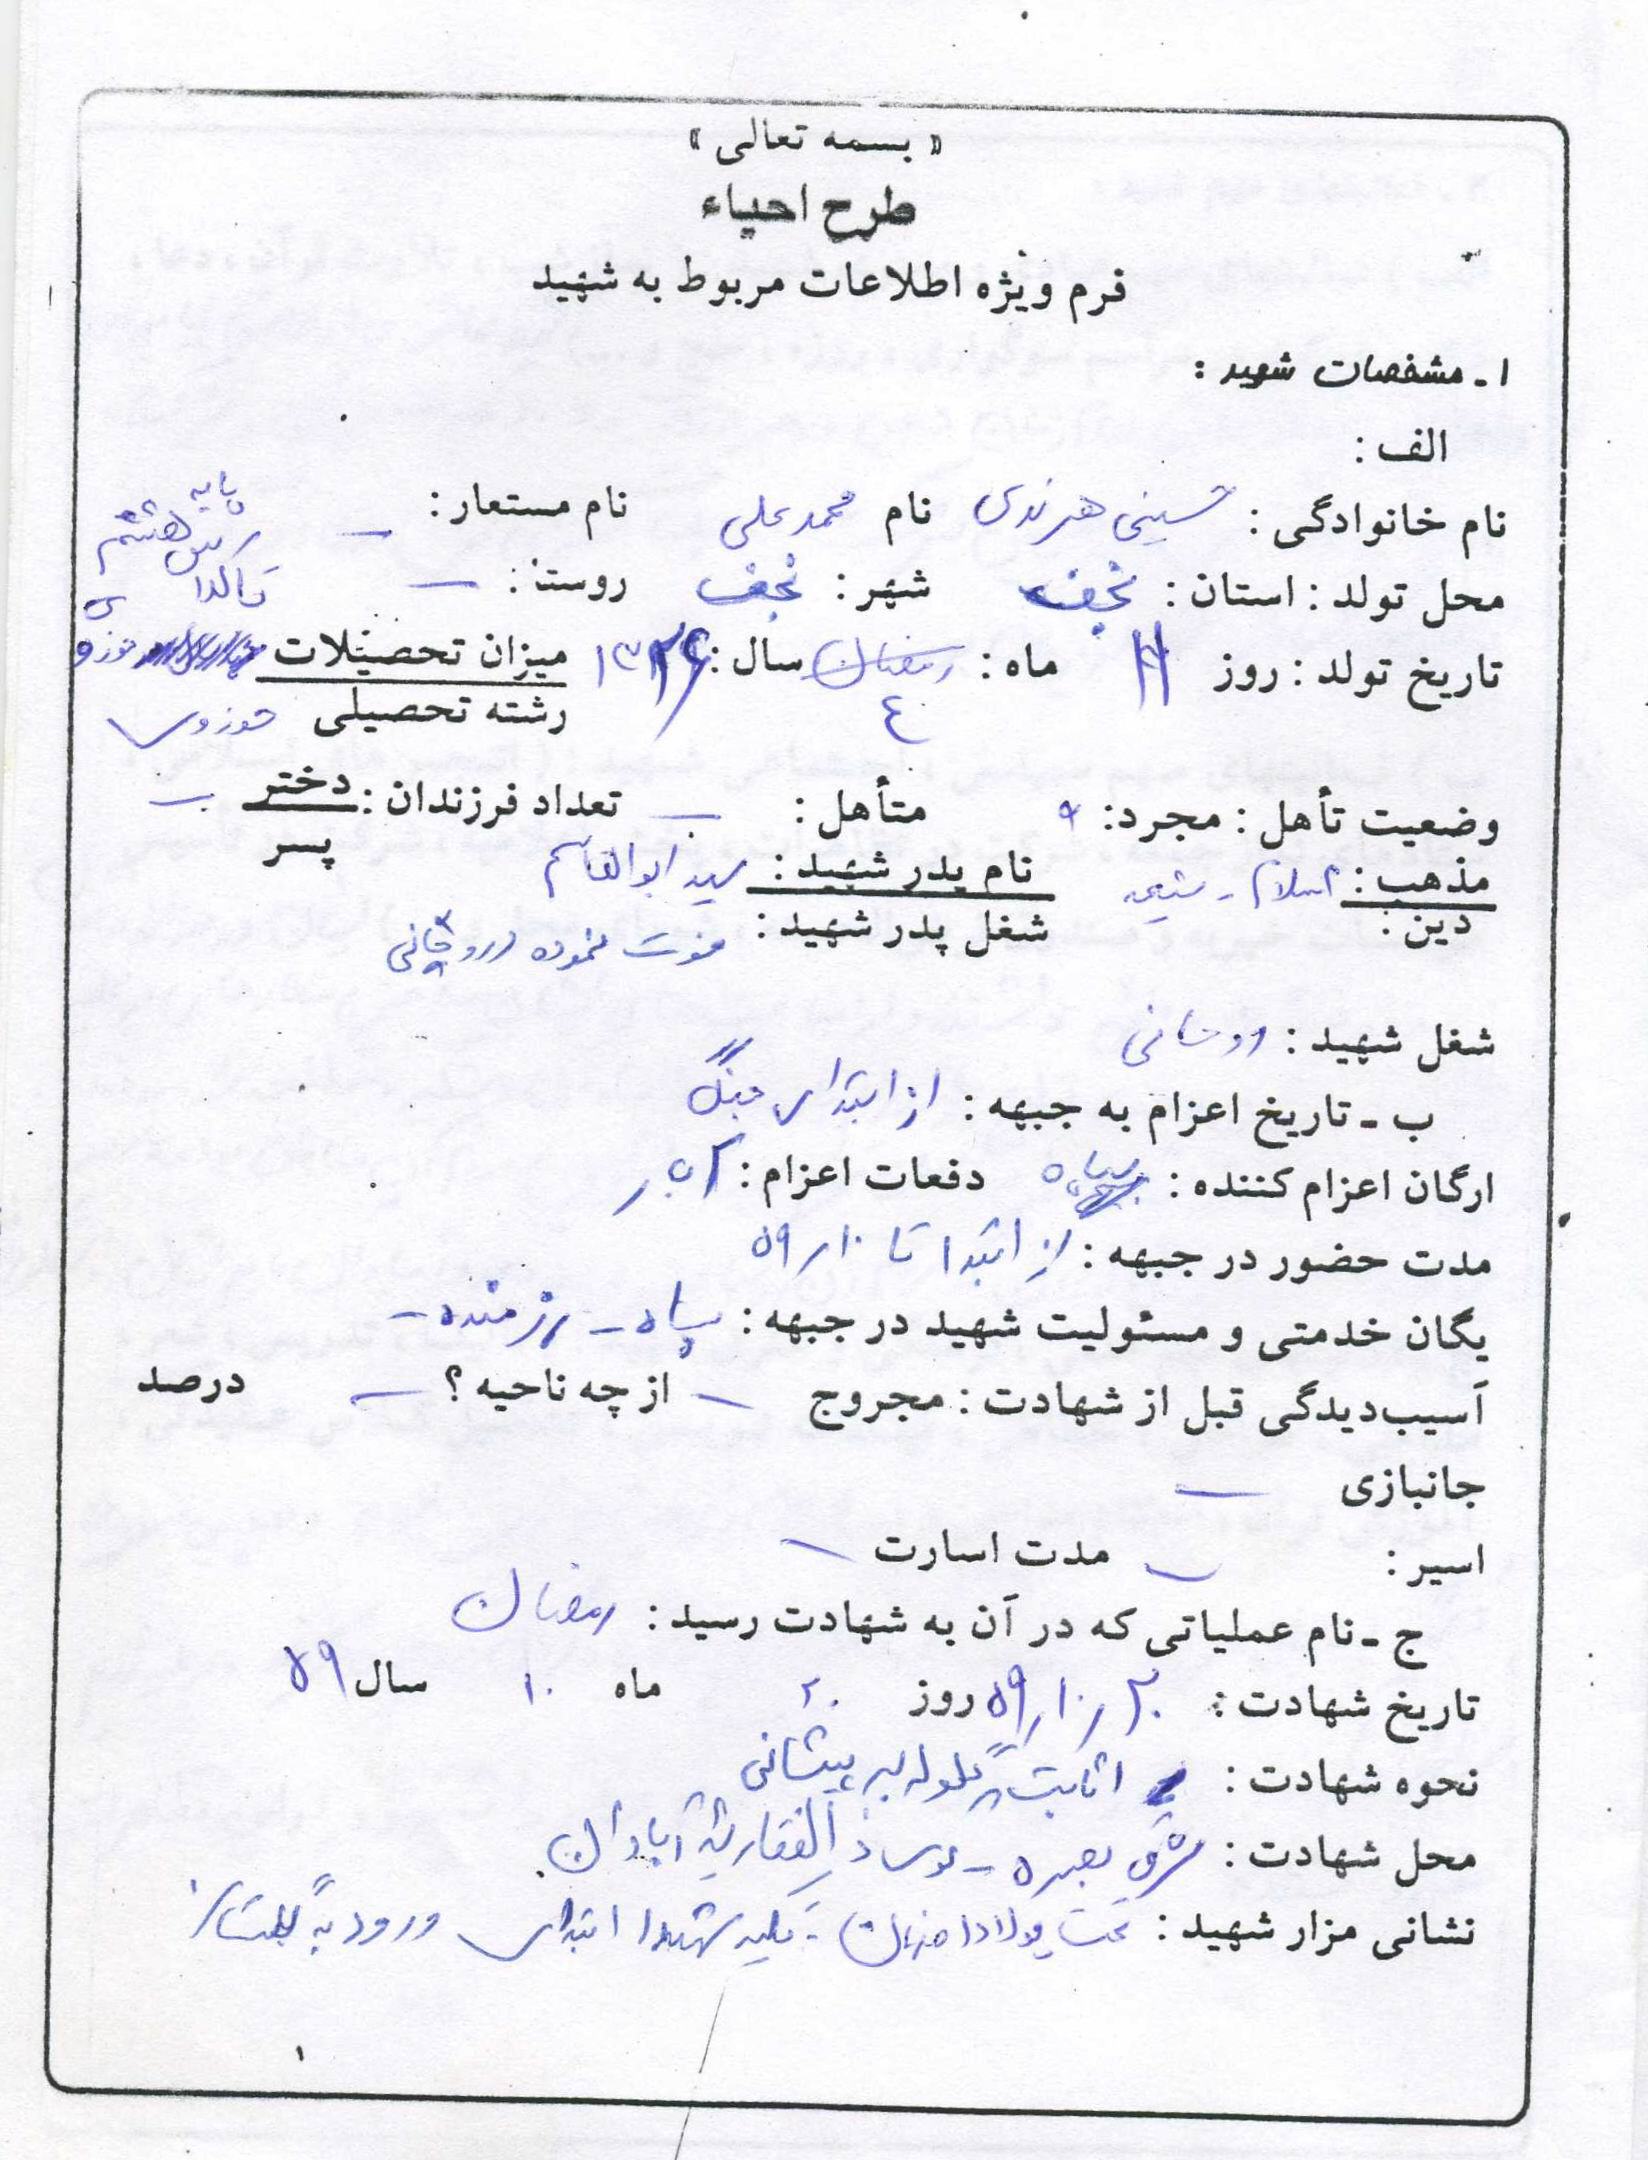 « بسمه تعالی »
طرح احیاء
فرم ویژه اطلاعات مربوط به شهید
۱ ـ مشخصات شهید :
الف :
نام خانوادگی : حسینی هرندی نام محمدعلی نام مستعار : —
پایه هشتم
محل تولد : استان : نجف شهر : نجف روستا : —
تاریخ تولد : روز ماه : رمضان ۴ سال : میزان تحصیلات
رشته تحصیلی حوزوی
وضعیت تأهل : مجرد : متأهل : — تعداد فرزندان : دختر —
پسر
مذهب : اسلام - شیعه نام پدر شهید : سید ابوالقاسم
دین : شغل پدر شهید : فوت نموده روحانی
شغل شهید : روحانی
ب ـ تاریخ اعزام به جبهه : از ابتدای جنگ
ارگان اعزام کننده : سپاه دفعات اعزام :
مدت حضور در جبهه : از ابتدا تا ۵۹/۱۰
یگان خدمتی و مسئولیت شهید در جبهه : سپاه - رزمنده -
آسیب‌دیدگی قبل از شهادت : مجروح — از چه ناحیه ؟ — درصد
جانبازی —
اسیر : — مدت اسارت —
ج ـ نام عملیاتی که در آن به شهادت رسید : رمضان
تاریخ شهادت : ۵۹/۱۰/۲۰ روز ۲۰ ماه ۱۰ سال ۵۹
نحوه شهادت : اثابت گلوله به پیشانی
محل شهادت : شرق بصره - ذالفقاریه آبادان
نشانی مزار شهید : تخت پولاد اصفهان - تکیه شهدا ابتدای ورود به گلستان
۱